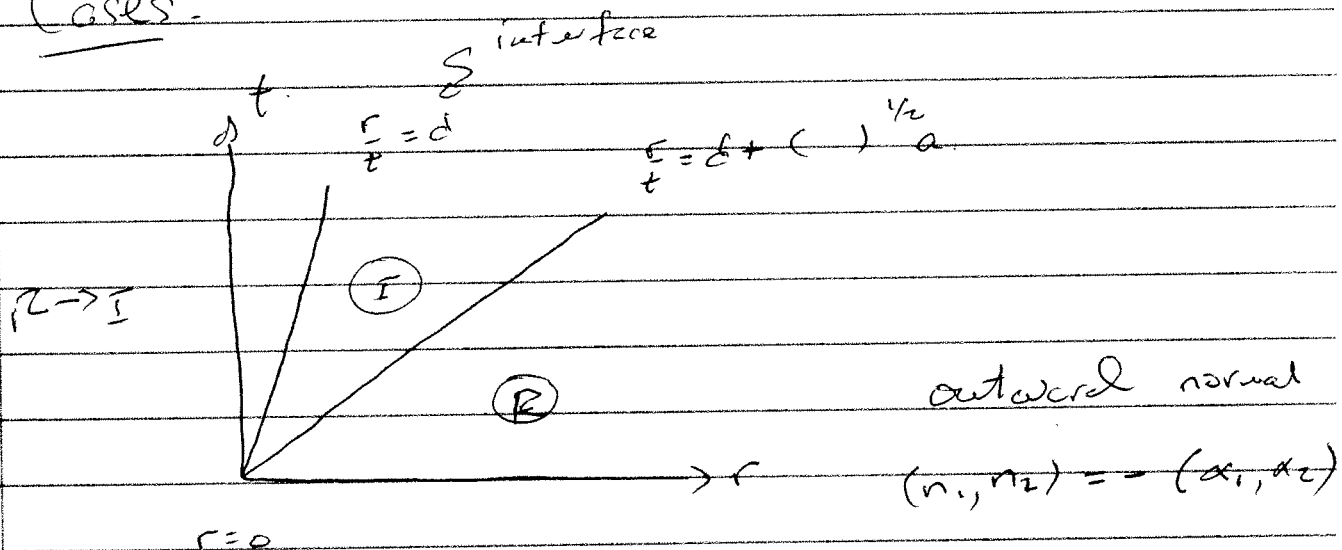 Cases.
interface
t
r/t = d
r/t = d + ( )^{1/2} a
I
R → I
R
outward normal
r
(n₁, n₂) = - (α₁, α₂)
r=0